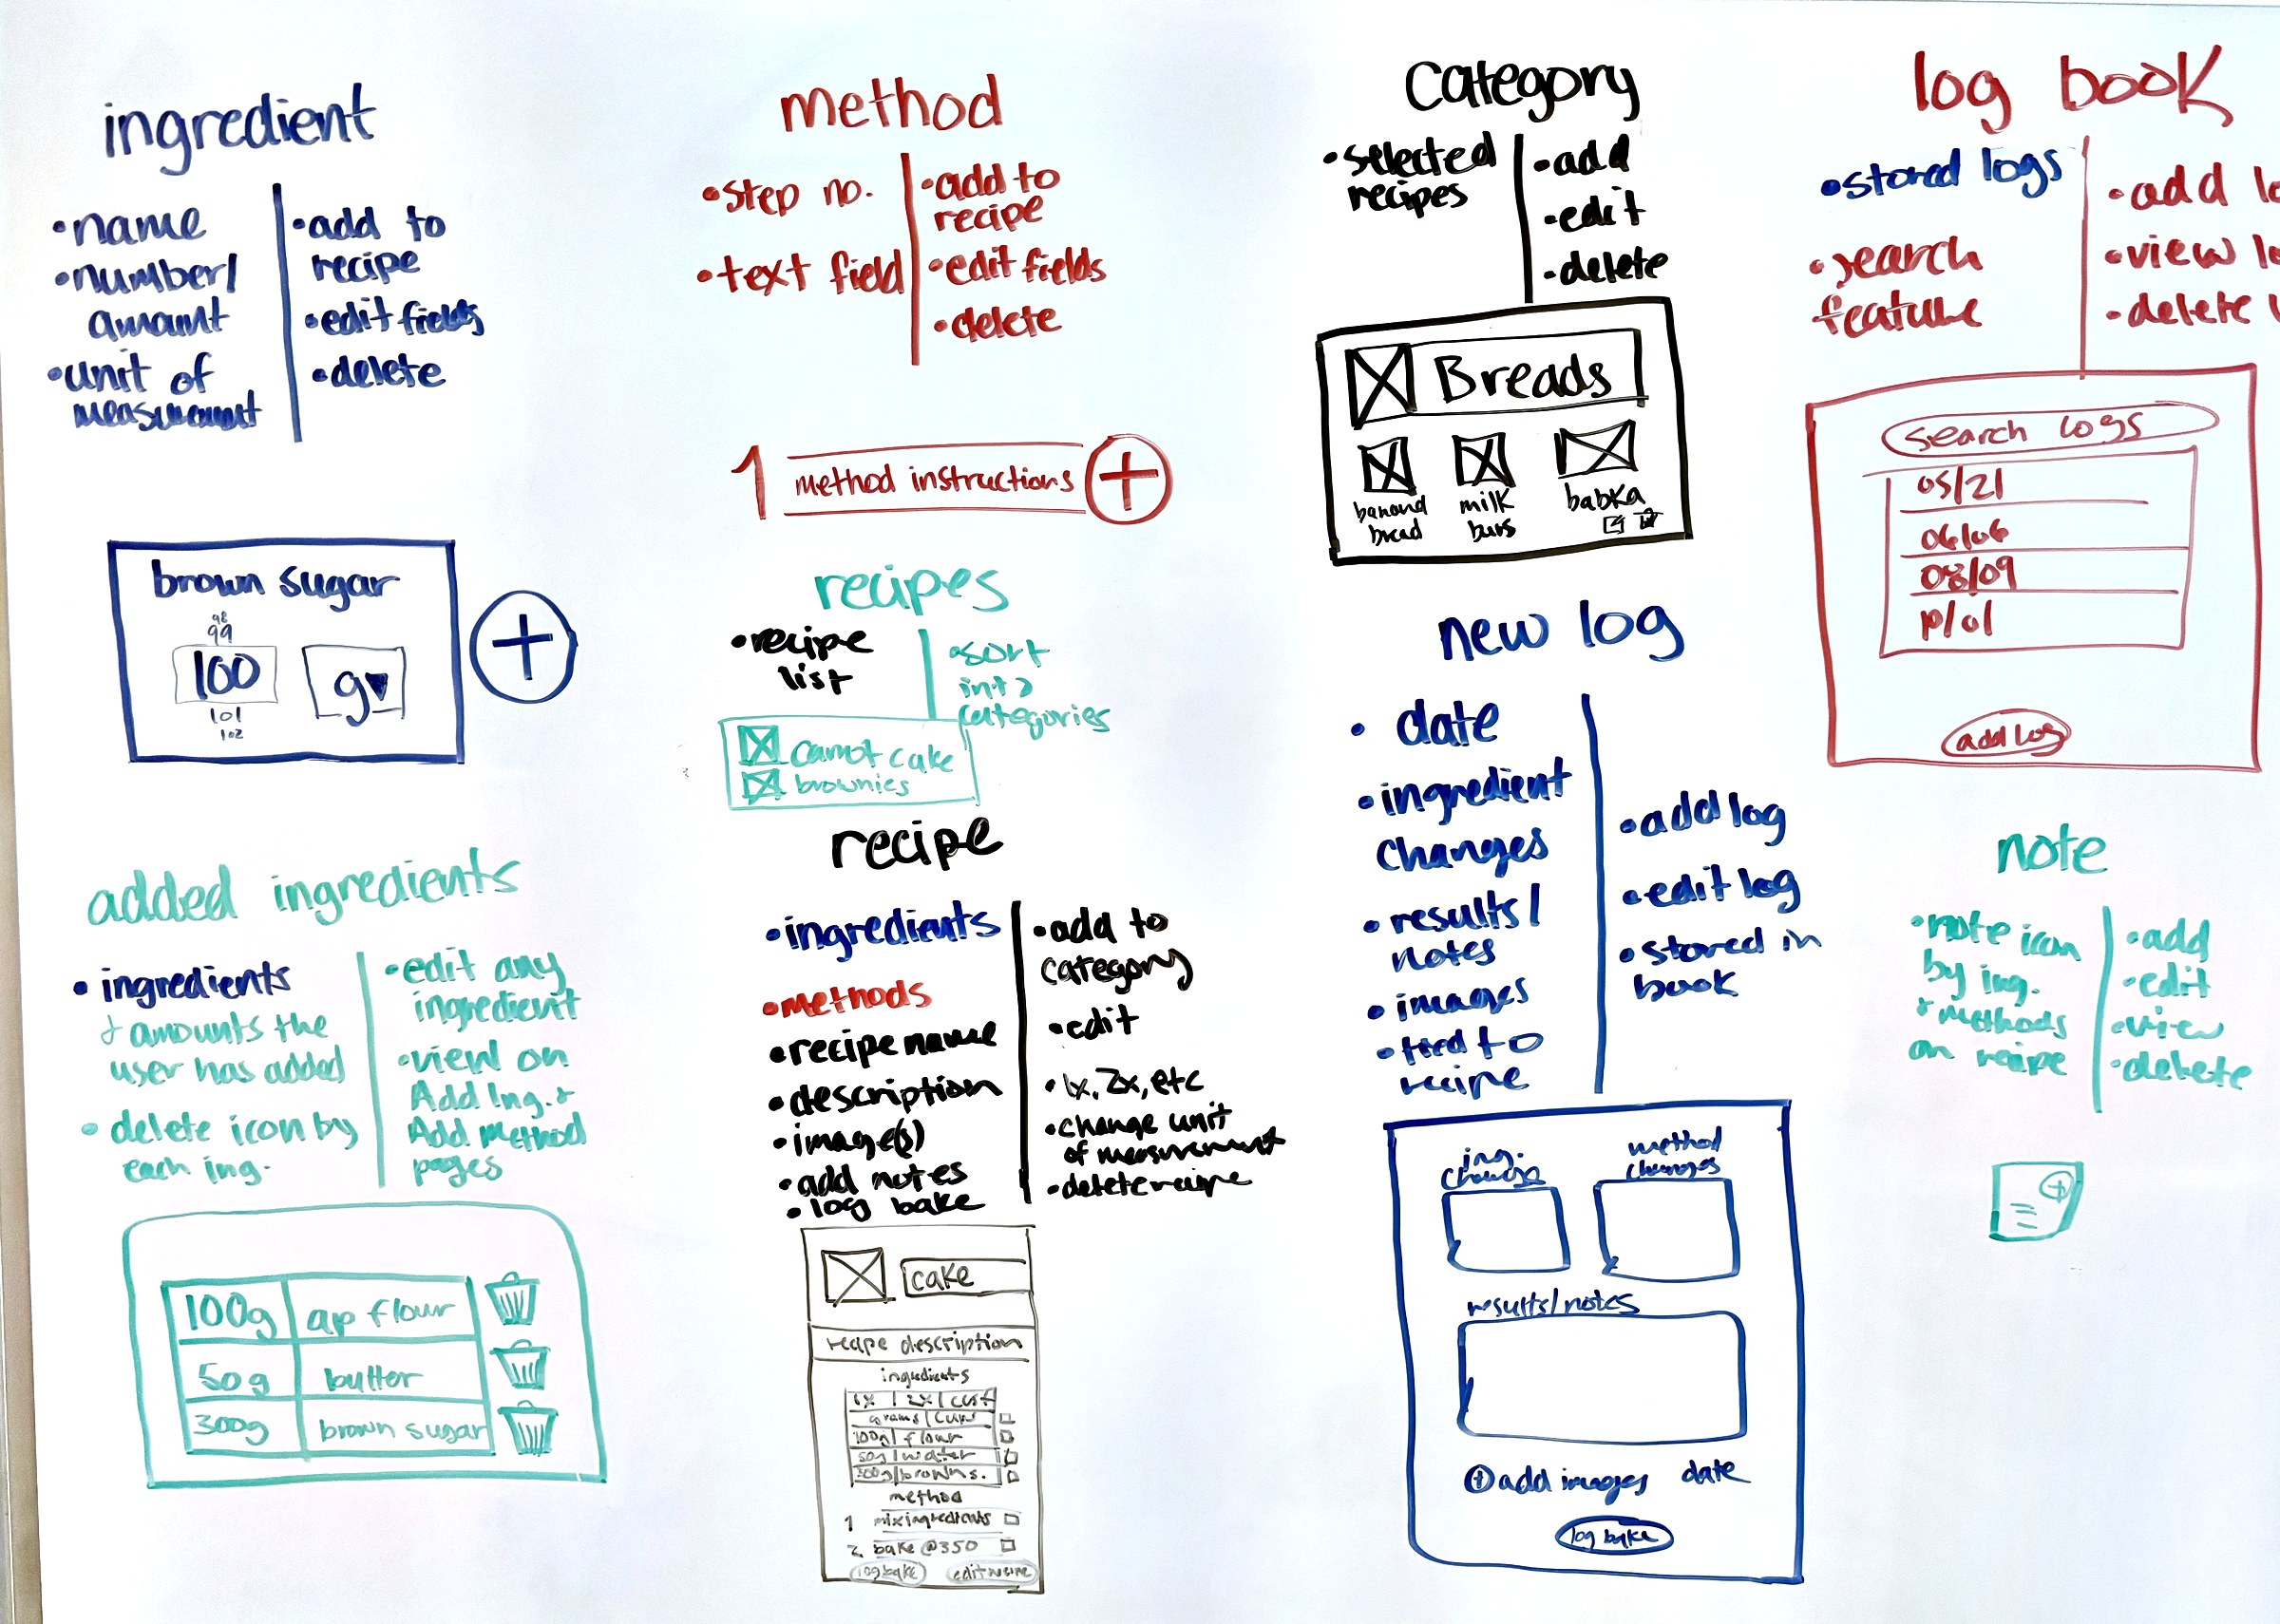 ingredient
•name
•number/
amount
•unit of
measurement
•add to
recipe
•edit fields
•delete
brown sugar
98
99
100
101
102
g▼
+
added ingredients
•ingredients
+ amounts the
user has added
•delete icon by
each ing.
•edit any
ingredient
•view on
Add Ing. +
Add method
pages
100g ap flour
50g butter
300g brown sugar
method
•step no.
•text field
•add to
recipe
•edit fields
•delete
1 method instructions +
recipes
•recipe
list
•sort
into
categories
carrot cake
brownies
recipe
•ingredients
•methods
•recipe name
•description
•image(s)
•add notes
•log bake
•add to
category
•edit
•1x, 2x, etc
•change unit
of measurement
•delete recipe
cake
recipe description
ingredients
1x | 2x | cust
grams | cups
100g | flour
50g | water
300g | brown s.
method
1 mix ingredients
2. bake @350
log bake edit recipe
Category
•selected
recipes
•add
•edit
•delete
Breads
banana
bread
milk
buns
babka
new log
•date
•ingredient
changes
•results/
notes
•images
•tied to
recipe
•add log
•edit log
•stored in
book
ing.
change
method
changes
results/notes
+ add images date
log bake
log book
•stored logs
•search
feature
•add lo
•view lo
•delete l
search logs
05/21
06/06
08/09
add log
note
•note icon
by ing.
+ methods
on recipe
•add
•edit
•view
•delete